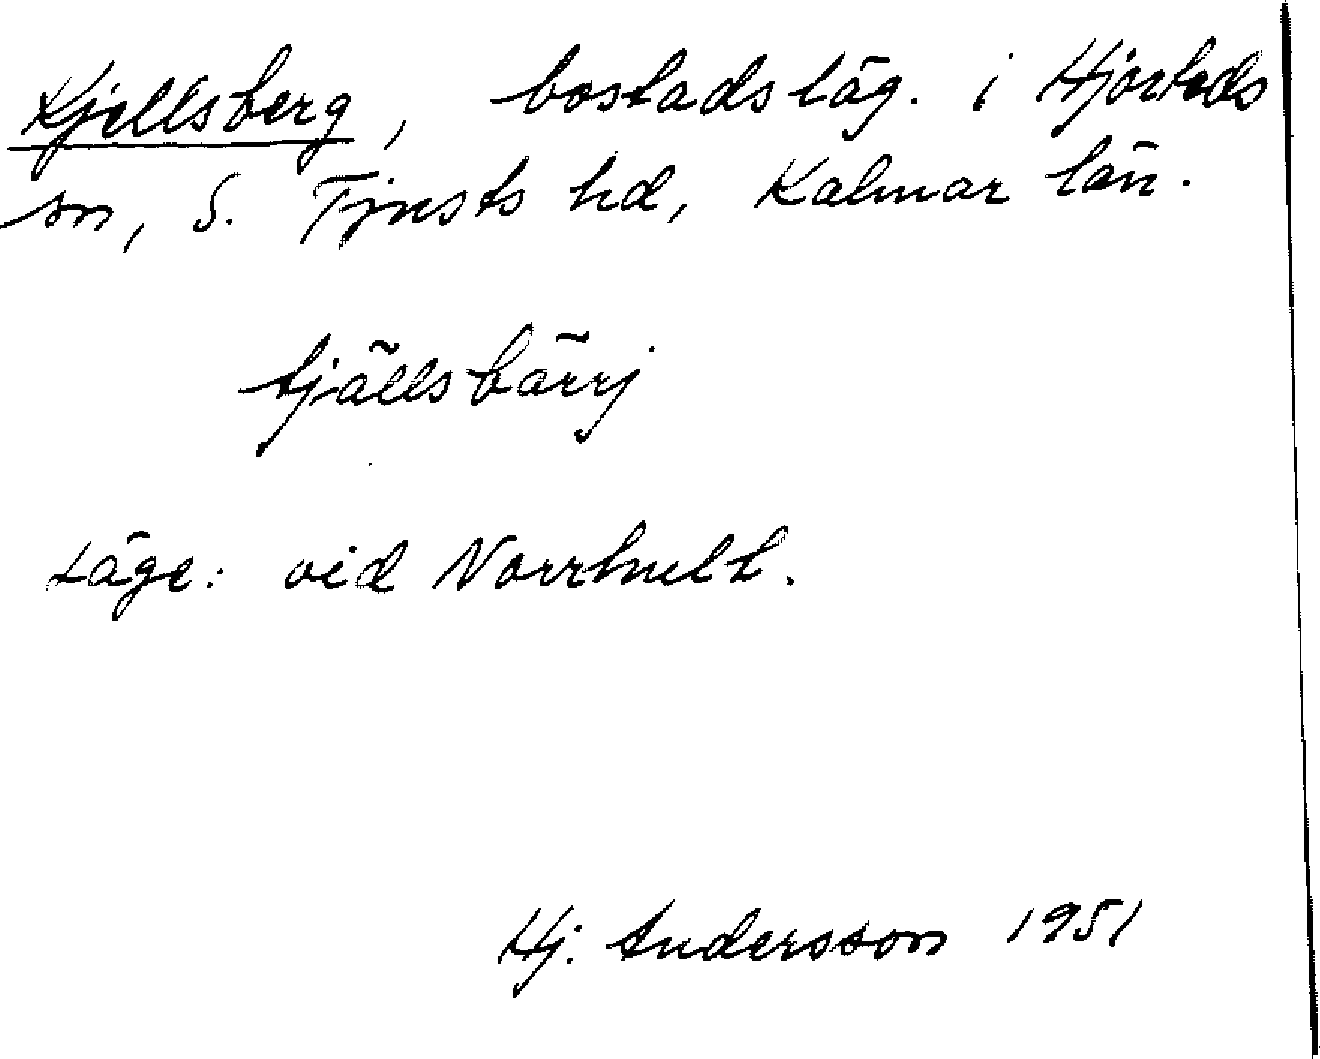 Kjellsberg, bostadsläg. i Hjorteds
sn, S. Tjusts hd, Kalmar län.
tjällsbärrj
Läge: vid Norrhult.
Hj. Andersson 1951